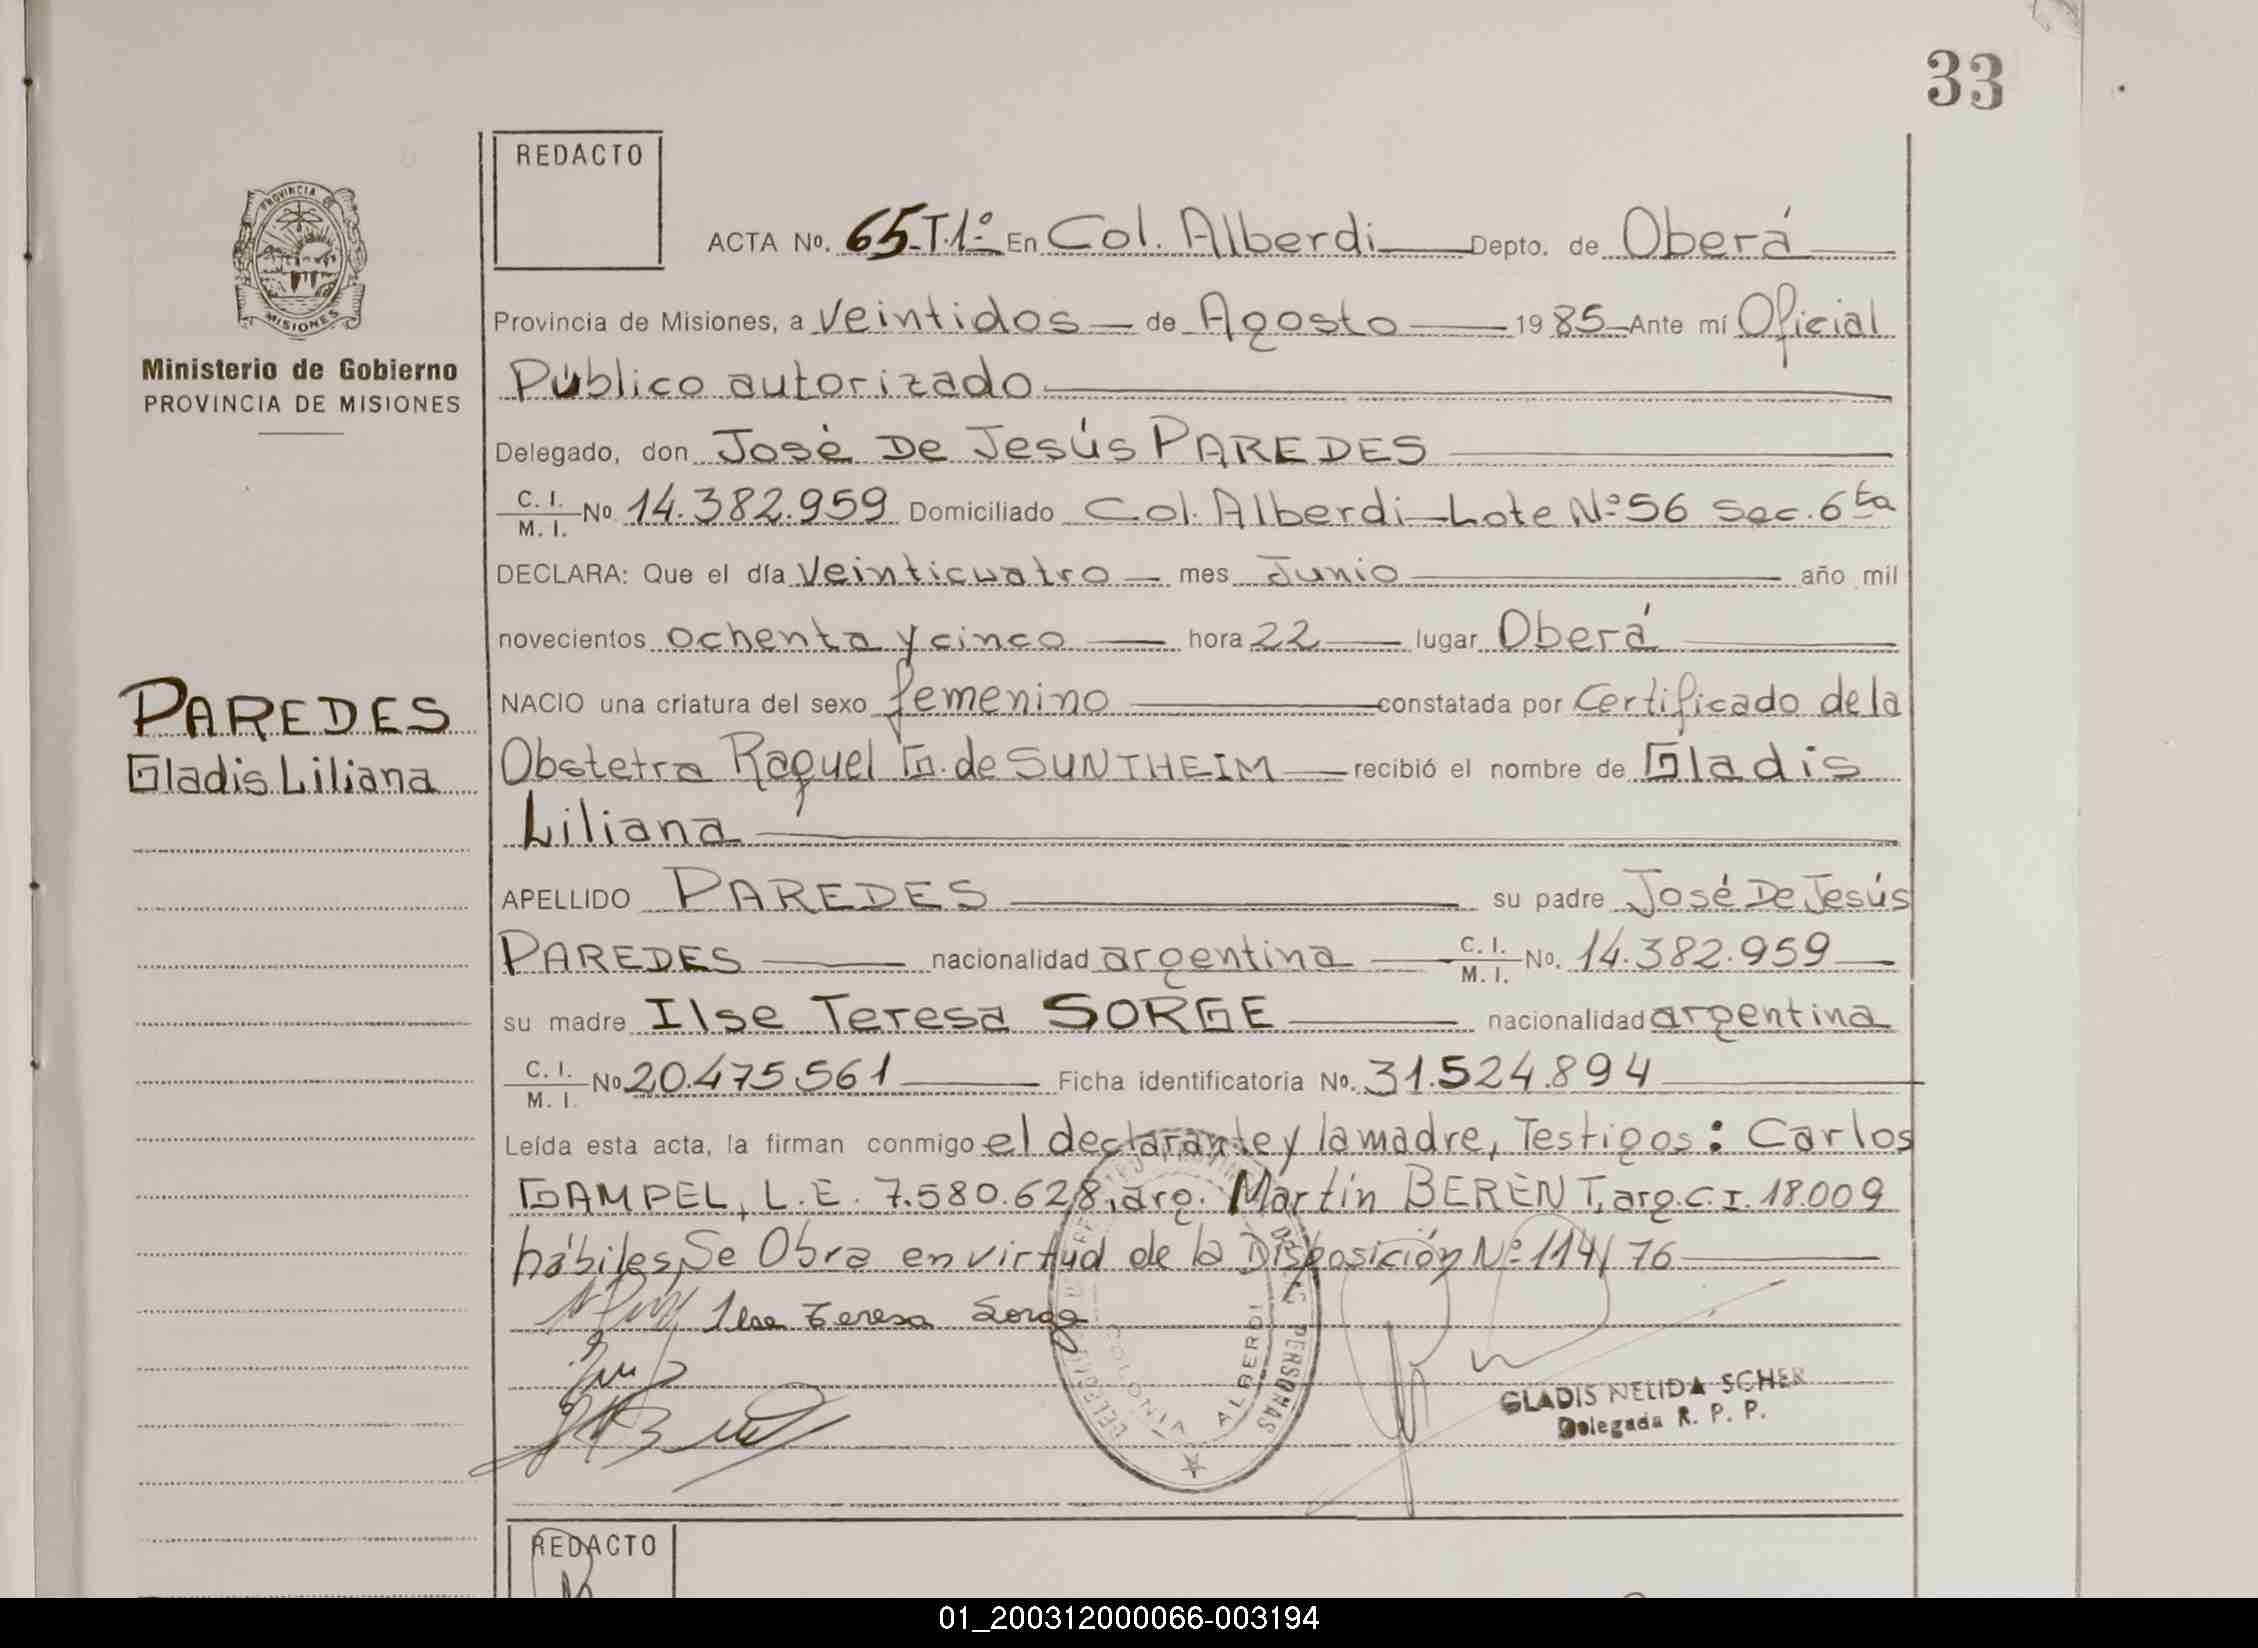 33
REDACTO
PROVINCIA DE
MISIONES
Ministerio de Gobierno
PROVINCIA DE MISIONES
ACTA No. 65-T.1º- En Col. Alberdi Depto. de Oberá
Provincia de Misiones, a veintidos de Agosto 1985 Ante mí Oficial
Público autorizado
Delegado, don José De Jesús PAREDES
C. I. / M. I. No 14.382.959 Domiciliado Col. Alberdi-Lote Nº 56 Sec. 6ta
DECLARA: Que el día veinticuatro mes Junio año mil
novecientos ochenta y cinco hora 22 lugar Oberá
NACIO una criatura del sexo femenino constatada por Certificado de la
Obstetra Raquel G. de SUNTHEIM recibió el nombre de Gladis
Liliana
PAREDES
Gladis Liliana
APELLIDO PAREDES su padre José De Jesús
PAREDES nacionalidad argentina C. I. / M. I. No. 14.382.959
su madre Ilse Teresa SORGE nacionalidad argentina
C. I. / M. I. No 20.475.561 Ficha identificatoria No. 31.524.894
Leída esta acta, la firman conmigo el declarante y la madre, Testigos: Carlos
GAMPEL, L.E. 7.580.628, arg. Martín BERENT, arg. C.I. 18.009
hábiles, Se Obra en virtud de la Disposición Nº 114/76
Ilse Teresa Sorge
DE LAS PERSONAS
COLONIA ALBERDI
GLADIS NELIDA SCHER
Delegada R. P. P.
REDACTO
01_200312000066-003194